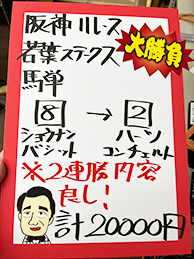 阪神11レース
若葉ステークス
大勝負
馬単
8 → 2
ショウナン ハーツ
バシット コンチェルト
※2連勝内容
良し!
計20000円